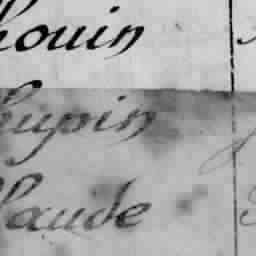 houin
hupin
laude